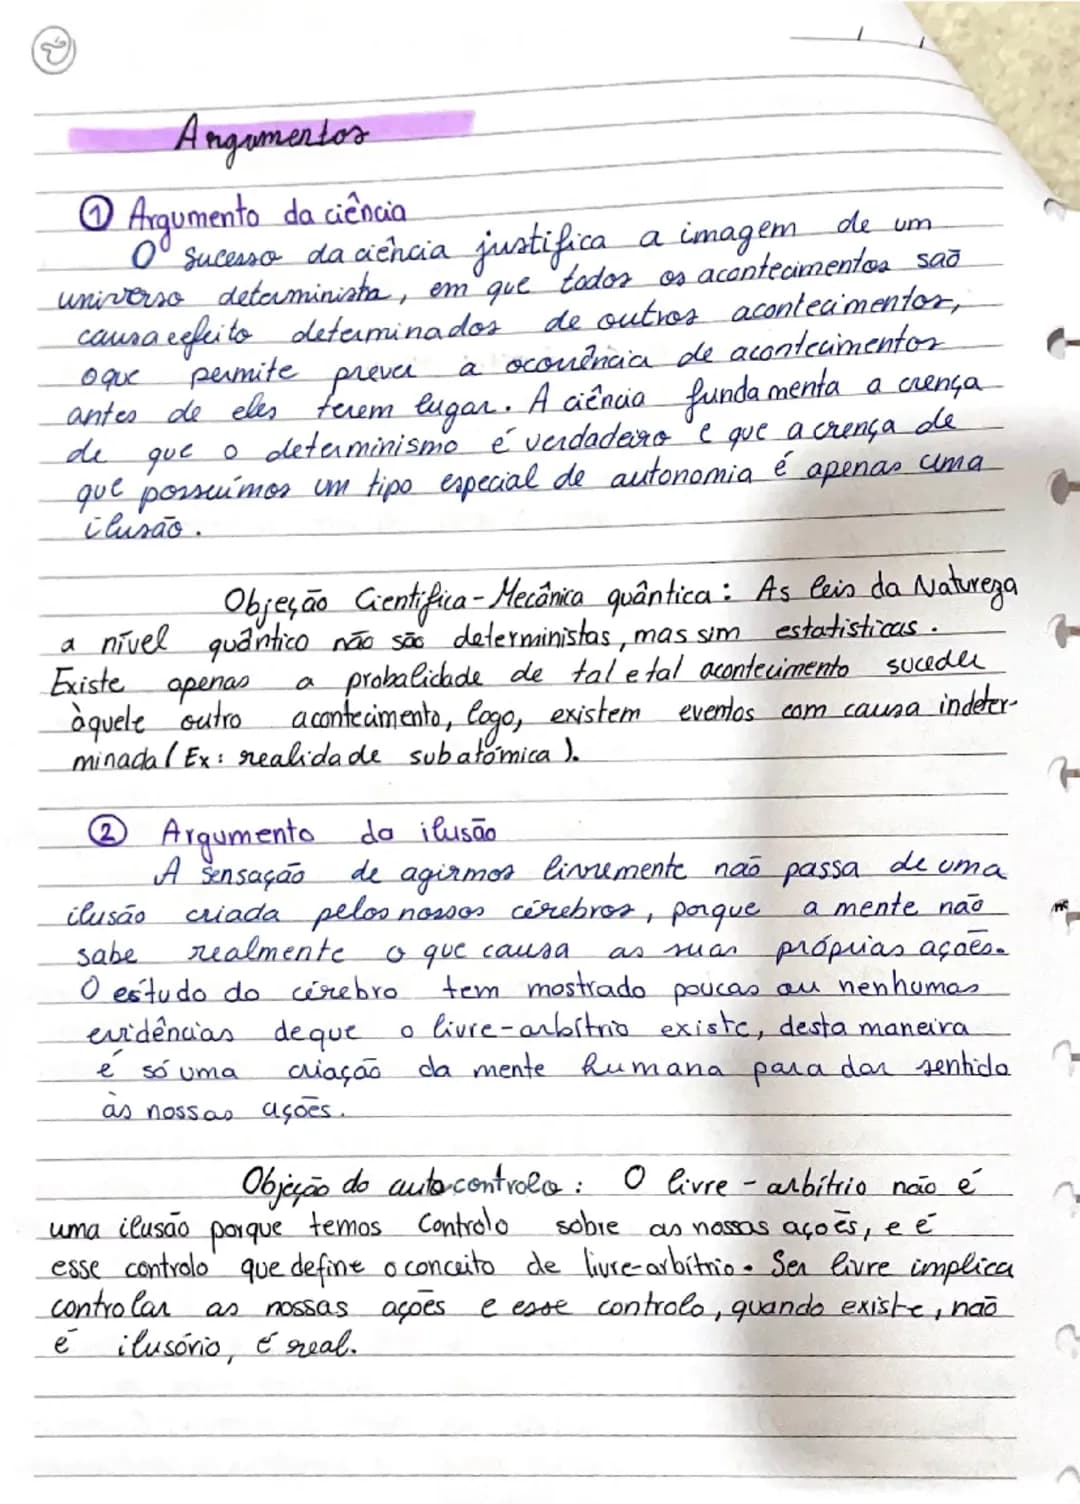 Argumentos
① Argumento da ciência
O sucesso da ciência justifica a imagem de um
universo determinista, em que todos os acontecimentos são
causa e efeito determinados de outros acontecimentos,
o que permite prever a ocorrência de acontecimentos
antes de eles terem lugar. A ciência fundamenta a crença
de que o determinismo é verdadeiro e que a crença de
que possuímos um tipo especial de autonomia é apenas uma
ilusão.
Objeção Científica - Mecânica quântica: As leis da Natureza
a nível quântico não são deterministas, mas sim estatisticas.
Existe apenas a probalidade de tal e tal acontecimento suceder
àquele outro acontecimento, logo, existem eventos com causa indeter-
minada (Ex: realidade subatómica).
② Argumento da ilusão
A sensação de agirmos livremente não passa de uma
ilusão criada pelos nossos cérebros, porque a mente não
sabe realmente o que causa as suas próprias ações.
O estudo do cérebro tem mostrado poucas ou nenhumas
evidências de que o livre-arbítrio existe, desta maneira
é só uma criação da mente humana para dar sentido
às nossas ações.
Objeção do autocontrolo: O livre-arbítrio não é
uma ilusão porque temos controlo sobre as nossas ações, e é
esse controlo que define o conceito de livre-arbítrio. Ser livre implica
controlar as nossas ações e esse controlo, quando existe, não
é ilusório, é real.